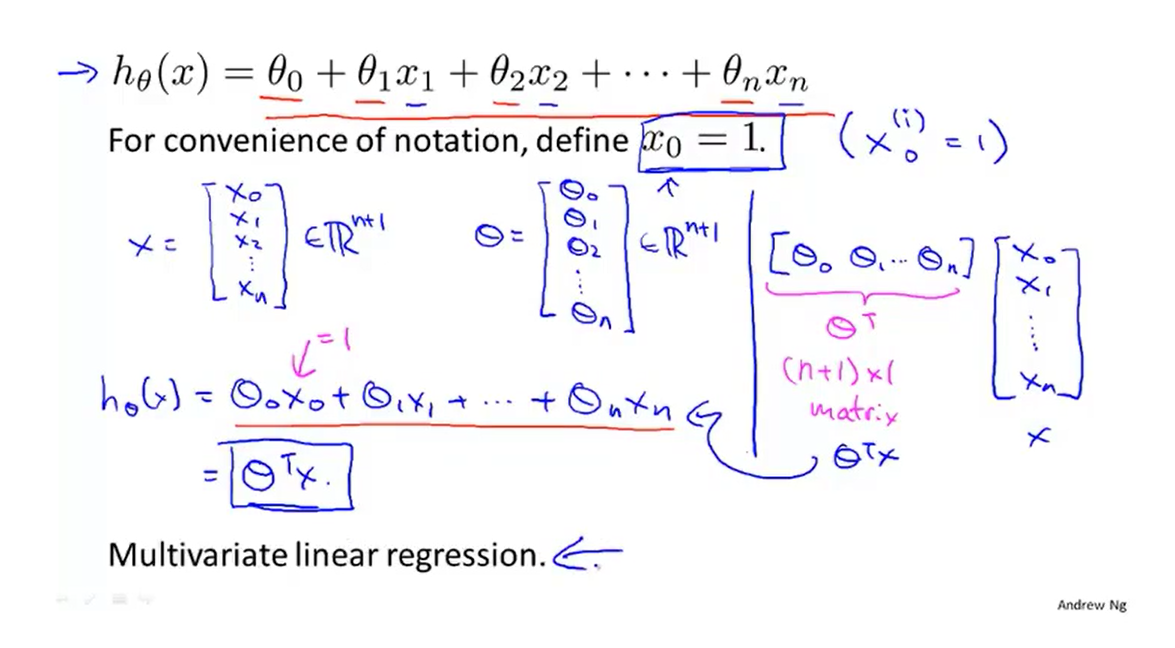 → hθ(x) = θ₀ + θ₁x₁ + θ₂x₂ + ⋯ + θₙxₙ
For convenience of notation, define x₀ = 1. (x₀⁽ⁱ⁾ = 1)
x = [x₀ x₁ x₂ ⋮ xₙ] ∈ ℝⁿ⁺¹
θ = [θ₀ θ₁ θ₂ ⋮ θₙ] ∈ ℝⁿ⁺¹
[θ₀ θ₁ ⋯ θₙ] [x₀ x₁ ⋮ xₙ]
θᵀ
(n+1) x 1
matrix
x
θᵀx
= 1
hθ(x) = θ₀x₀ + θ₁x₁ + ⋯ + θₙxₙ
= θᵀx.
Multivariate linear regression. ←
Andrew Ng